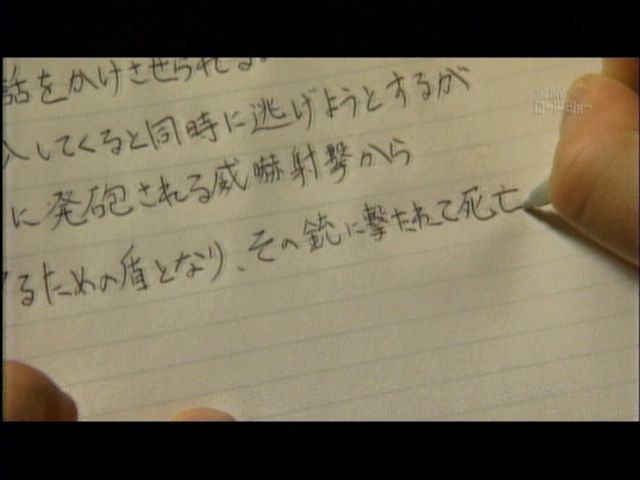 話をかけさせられる。
入してくると同時に逃げようとするが
に発砲される威嚇射撃から
するための盾となり、その銃に撃たれて死亡